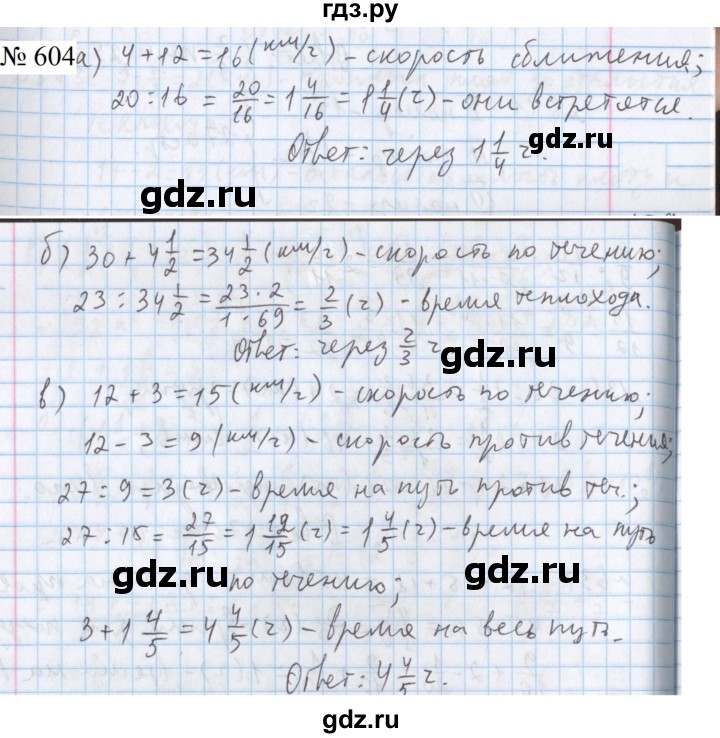 гдз.ру
№ 604 а) 4 + 12 = 16 (км/ч) - скорость сближения;
20 : 16 = 20/16 = 1 4/16 = 1 1/4 (ч) - они встретятся.
Ответ: через 1 1/4 ч.
gdz.ru
gdz.ru
б) 30 + 4 1/2 = 34 1/2 (км/ч) - скорость по течению;
23 : 34 1/2 = 23·2/1·69 = 2/3 (ч) - время теплохода.
Ответ: через 2/3 ч
gdz.ru
в) 12 + 3 = 15 (км/ч) - скорость по течению;
12 - 3 = 9 (км/ч) - скорость против течения;
gdz.ru
27 : 9 = 3 (ч) - время на путь против теч.;
27 : 15 = 27/15 = 1 12/15 (ч) = 1 4/5 (ч) - время на путь
gdz.ru по течению; gdz.ru
3 + 1 4/5 = 4 4/5 (ч) - время на весь путь.
gdz.ru
Ответ: 4 4/5 ч.
gdz.ru
gdz.ru